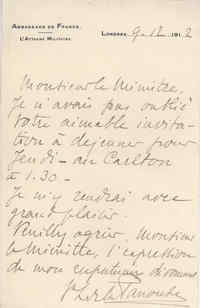 AMBASSADE DE FRANCE.
L'ATTACHÉ MILITAIRE.
LONDRES, 9-12 1912
Monsieur le Ministre,
Je n'avais pas oublié
votre aimable invita-
tion à déjeuner pour
Jeudi - au Carlton
à 1.30 -
Je m'y rendrai avec
grand plaisir.
Veuillez agréer, Monsieur
le Ministre, l'expression
de mon respectueux dévouement